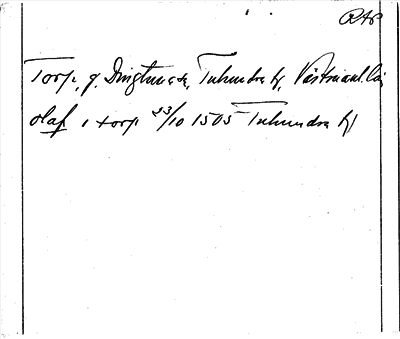 RAP
Torp, g. Dingtuna sn, Tuhundra hd, Västmanl. län
olaf i torp 23/10 1505 Tuhundra hd